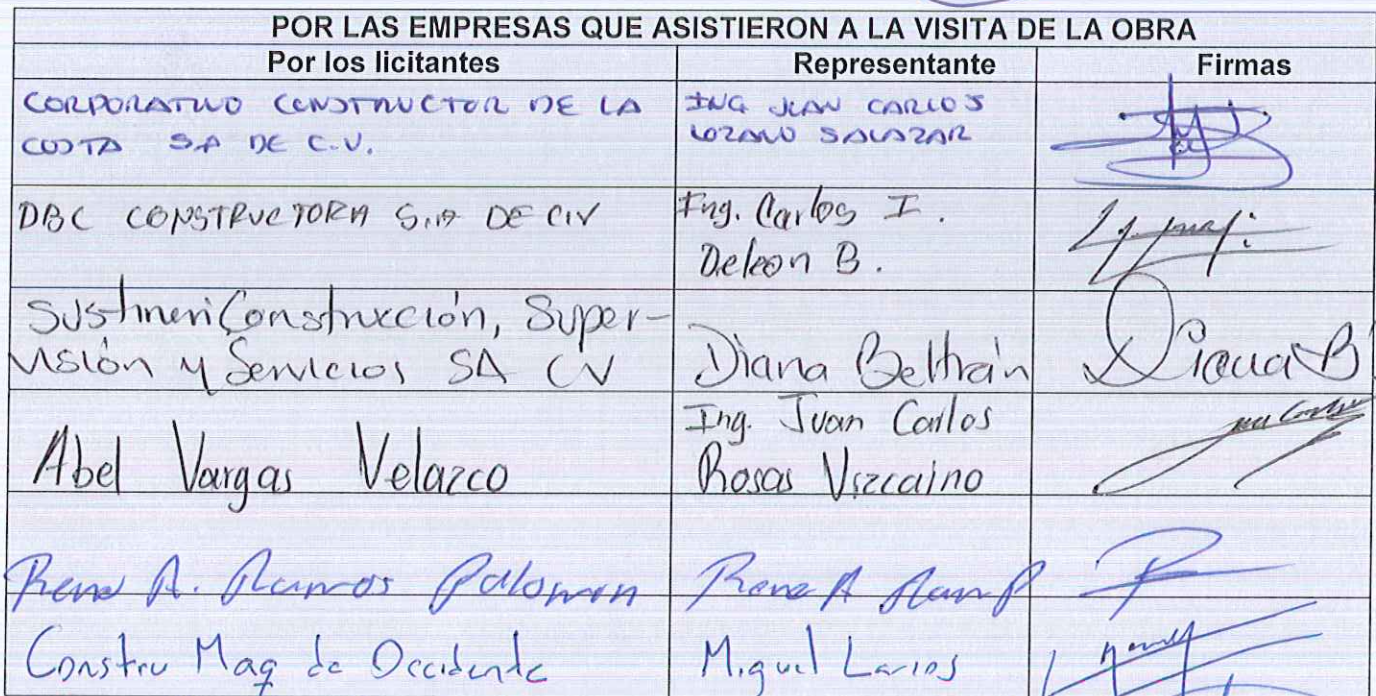 POR LAS EMPRESAS QUE ASISTIERON A LA VISITA DE LA OBRA
Por los licitantes Representante Firmas
CORPORATIVO CONSTRUCTOR DE LA
COSTA S.A DE C.V.
ING JUAN CARLOS
LOZANO SALAZAR
DBC CONSTRUCTORA S.A DE C.V
Ing. Carlos I.
Deleon B.
Sustineri Construcción, Super-
visión y Servicios SA CV
Diana Beltrán
Diana B
Abel Vargas Velazco
Ing. Juan Carlos
Rosas Vizcaino
Rene A. Ramos Palomin
Rene A Ram P
Constru Maq de Occidente
Miguel Larios